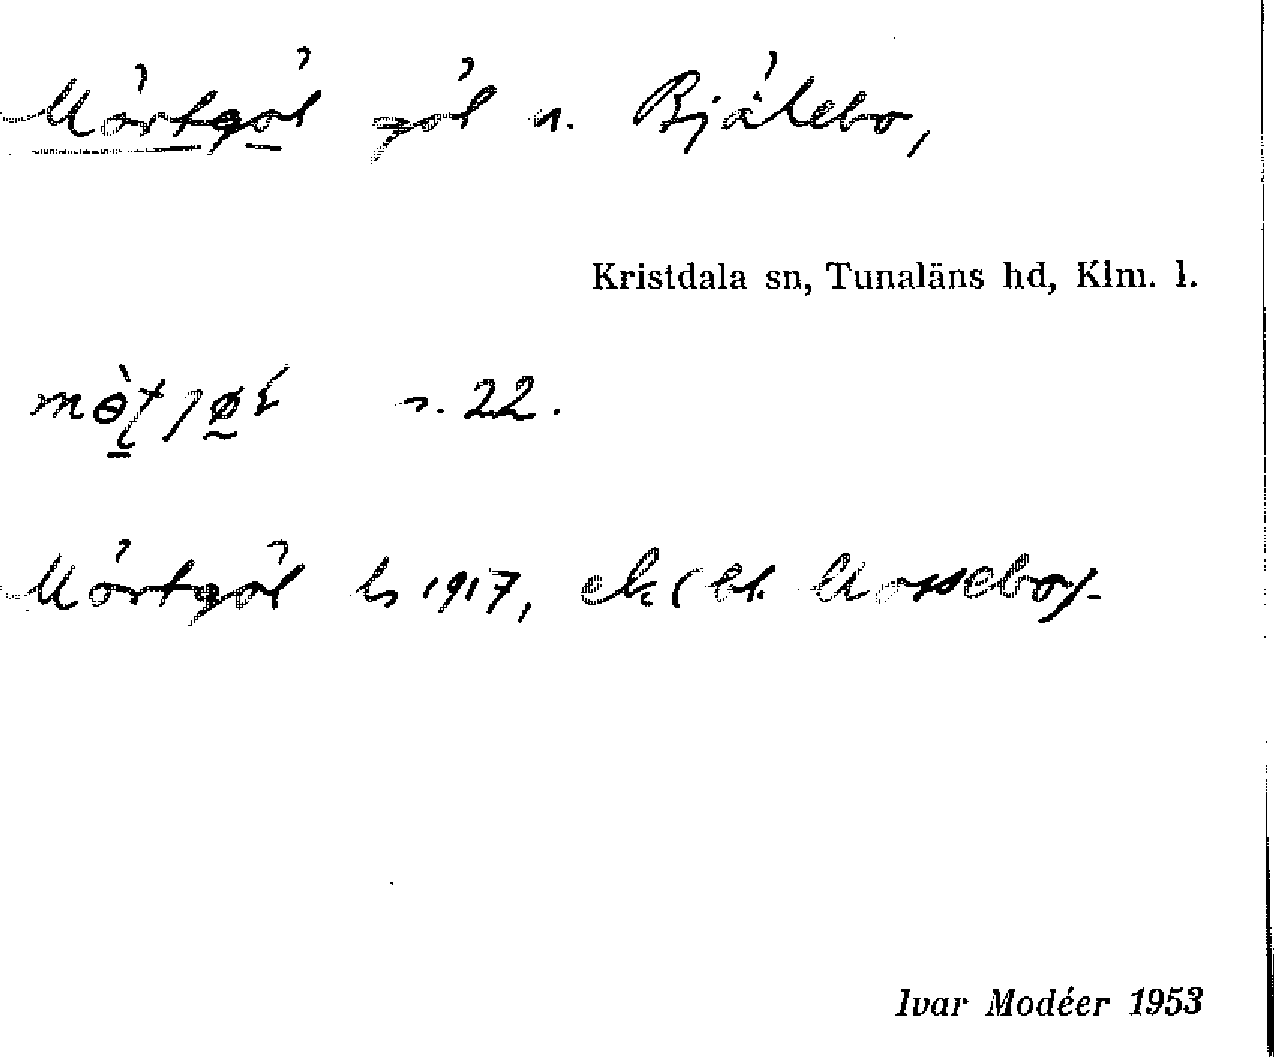 Mörtgöl göl n. Bjälebo,
Kristdala sn, Tunaläns hd, Klm. l.
s. 22.
Mörtgöl hs 1917, ek (bl. Mossebo).
Ivar Modéer 1953